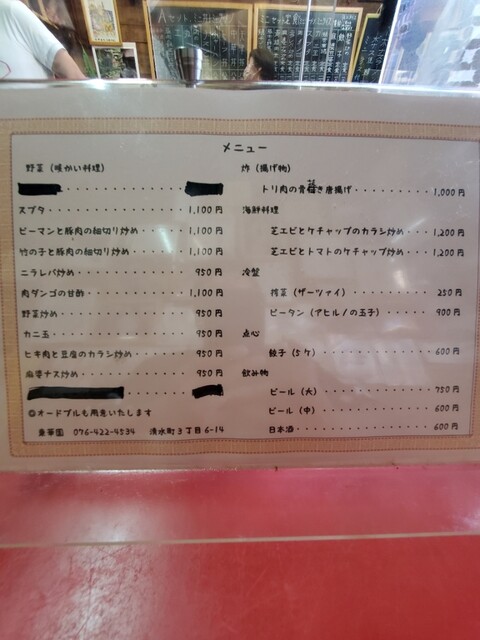 Aセット
メニュー
野菜（暖かい料理）
スブタ 1,100円
ピーマンと豚肉の細切り炒め 1,100円
竹の子と豚肉の細切り炒め 1,100円
ニラレバ炒め 950円
肉ダンゴの甘酢 1,100円
野菜炒め 950円
カニ玉 950円
ヒキ肉と豆腐のカラシ炒め 950円
麻婆ナス炒め 950円
◎オードブルも用意いたします
東華園 076-422-4534 清水町3丁目6-14
炸（揚げ物）
トリ肉の骨付き唐揚げ 1,000円
海鮮料理
芝エビとケチャップのカラシ炒め 1,200円
芝エビとトマトのケチャップ炒め 1,200円
冷盤
搾菜（ザーツァイ） 250円
ピータン（アヒルノの玉子） 900円
点心
餃子（5ケ） 600円
飲み物
ビール（大） 750円
ビール（中） 600円
日本酒 600円